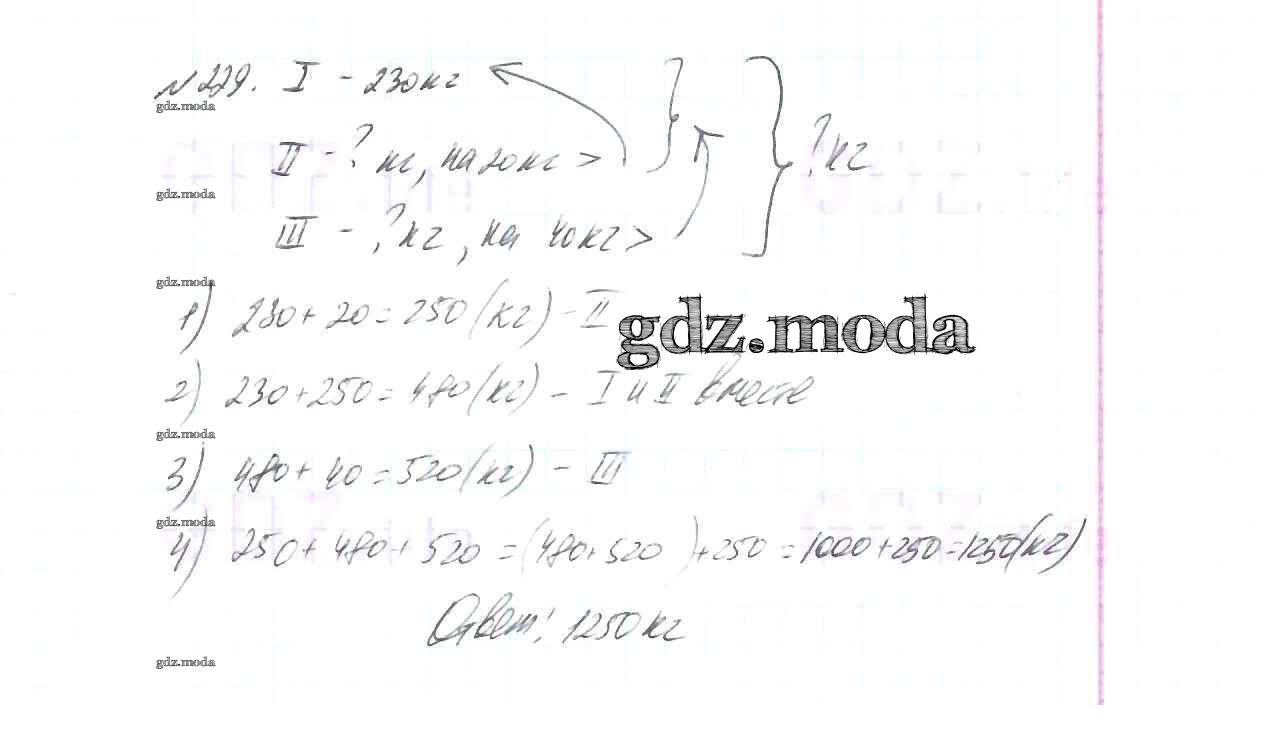 №229. I - 230кг
gdz.moda
II - ? кг, на 20кг > ?кг
gdz.moda
III - ?кг, на 40кг>
gdz.moda
1) 230+20=250(кг) - II
gdz.moda
2) 230+250=480(кг) - I и II вместе
gdz.moda
3) 480+40=520(кг) - III
gdz.moda
4) 250+480+520=(480+520)+250=1000+250=1250(кг)
Ответ: 1250кг
gdz.moda